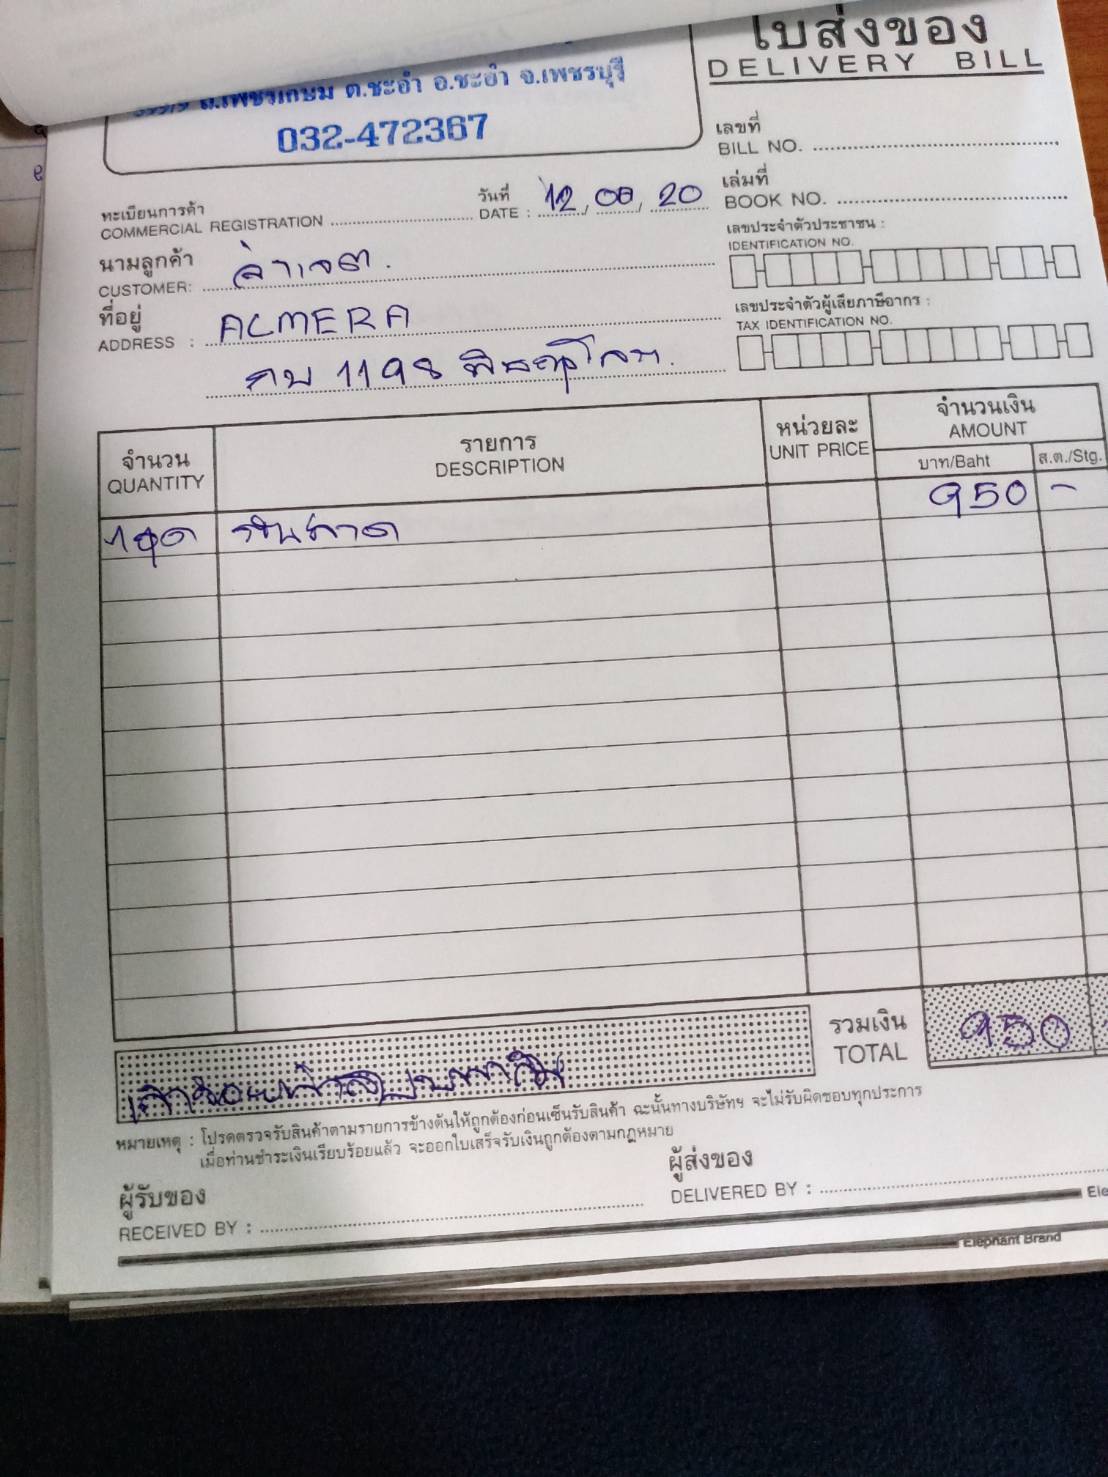 ใบส่งของ
DELIVERY BILL
ถ.เพชรเกษม ต.ชะอำ อ.ชะอำ จ.เพชรบุรี
032-472367
เลขที่
BILL NO.
เล่มที่
BOOK NO.
ทะเบียนการค้า
COMMERCIAL REGISTRATION
วันที่
DATE : 12, 08, 20
เลขประจำตัวประชาชน :
IDENTIFICATION NO.
นามลูกค้า
CUSTOMER:
ที่อยู่
ADDRESS : ALMERA
กบ 1198 พิษณุโลก.
เลขประจำตัวผู้เสียภาษีอากร :
TAX IDENTIFICATION NO.
จำนวน รายการ หน่วยละ จำนวนเงิน
QUANTITY DESCRIPTION UNIT PRICE AMOUNT
บาท/Baht ส.ต./Stg.
1ชุด 950 -
รวมเงิน
TOTAL 950
หมายเหตุ : โปรดตรวจรับสินค้าตามรายการข้างต้นให้ถูกต้องก่อนเซ็นรับสินค้า ฉะนั้นทางบริษัทฯ จะไม่รับผิดชอบทุกประการ
เมื่อท่านชำระเงินเรียบร้อยแล้ว จะออกใบเสร็จรับเงินถูกต้องตามกฎหมาย
ผู้รับของ
RECEIVED BY :
ผู้ส่งของ
DELIVERED BY :
Ele
Elephant Brand